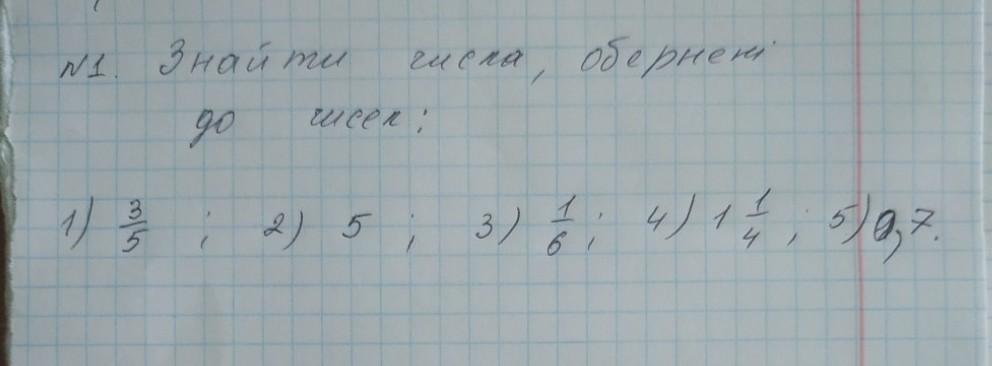 №1. Знайти числа, обернені
до чисел:
1) 3/5 ; 2) 5 ; 3) 1/6 ; 4) 1 1/4 ; 5) 0,7.